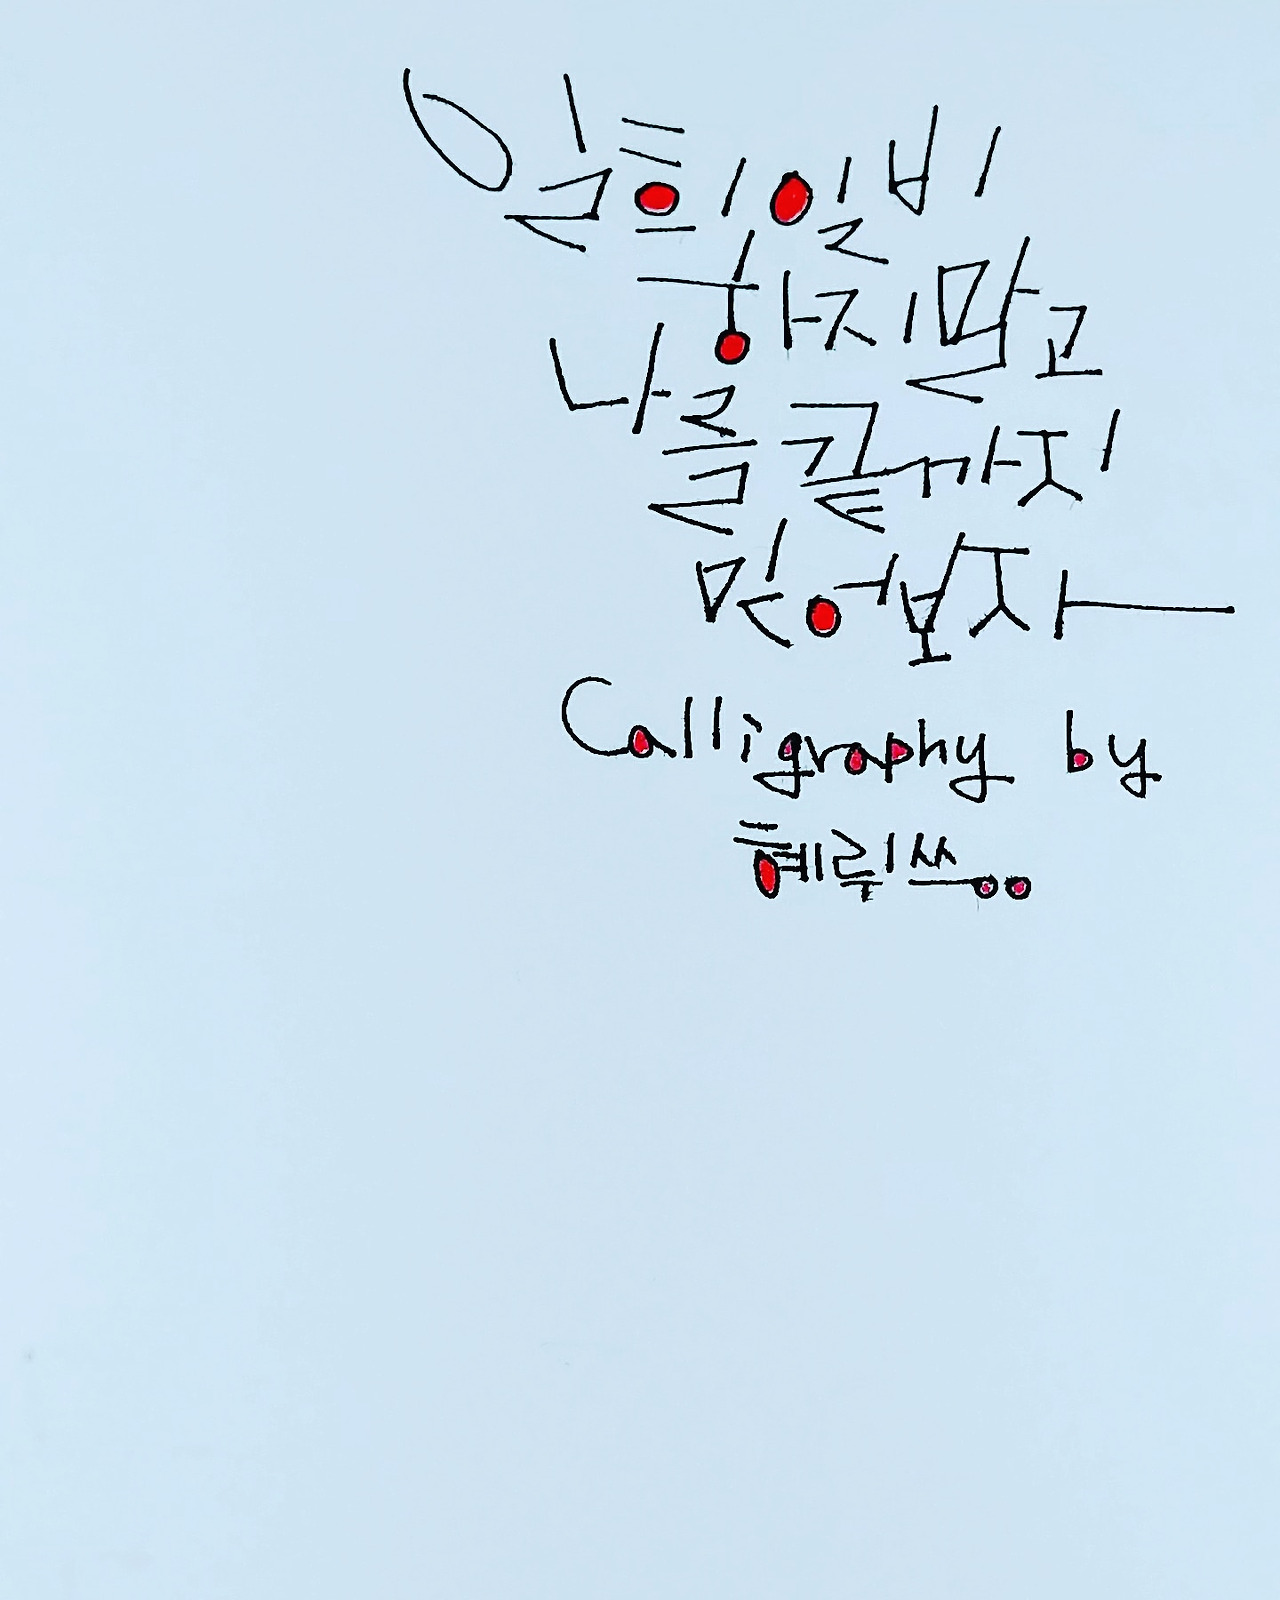 일희일비
하지말고
나를 끝까지
믿어보자
Calligraphy by
혜뤼쓰..